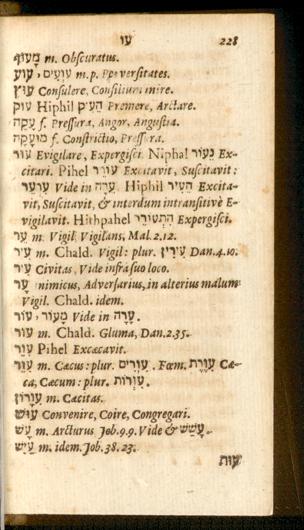 עו 228
מְעוּף m. Obscuratus.
עוע, עִוְעִים m. p. Perversitates.
עוּץ Consulere, Consilium inire.
עוּק Hiphil הֵעִיק Premere, Arctare.
עָקָה f. Pressura, Angor, Angustia.
מוּעָקָה f. Constrictio, Pressura.
עוּר Evigilare, Expergisci. Niphal נֵעוֹר Ex-
citari. Pihel עוֹרֵר Excitavit, Suscitavit:
עִרְעֵר Vide in עָרָה. Hiphil הֵעִיר Excita-
vit, Suscitavit, & interdum intransitivè E-
vigilavit. Hithpahel הִתְעוֹרֵר Expergisci.
עֵר m. Vigil, Vigilans, Mal. 2.12.
עִיר m. Chald. Vigil: plur. עִירִין Dan. 4.10.
עִיר Civitas, Vide infra suo loco.
עָר nimicus, Adversarius, in alterius malum
Vigil. Chald. idem.
עור, מָעוֹר Vide in עָרָה.
עוּר m. Chald. Gluma, Dan. 2.35.
עִוֵּר Pihel Excæcavit.
עִוֵּר m. Cæcus: plur. עִוְרִים. Fœm. עִוֶּרֶת Cæ-
ca, Cæcum: plur. עִוְרוֹת.
עִוָּרוֹן m. Cæcitas.
עוּשׁ Convenire, Coire, Congregari.
עָשׁ m. Arcturus Job. 9.9. Vide & עָשַׁשׁ.
עַיִשׁ m. idem. Job. 38.23.
עוּת